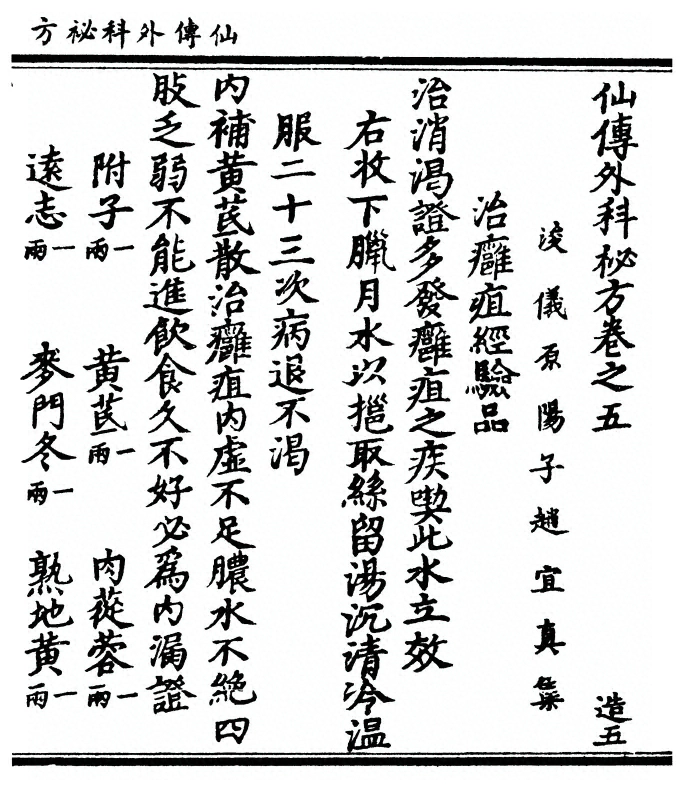 仙傳外科祕方
仙傳外科祕方卷之五
造五
浚儀原陽子趙宜真集
治癰疽經驗品
治消渴證多發癰疽之疾喫此水立效
右收下臘月水以摳取絲留湯沉清冷溫
服二十三次病退不渴
內補黃芪散治癰疽內虛不足膿水不絕四
肢乏弱不能進飲食久不好必為內漏證
附子一兩 黃芪一兩 肉蓯蓉一兩
遠志一兩 麥門冬一兩 熟地黃一兩